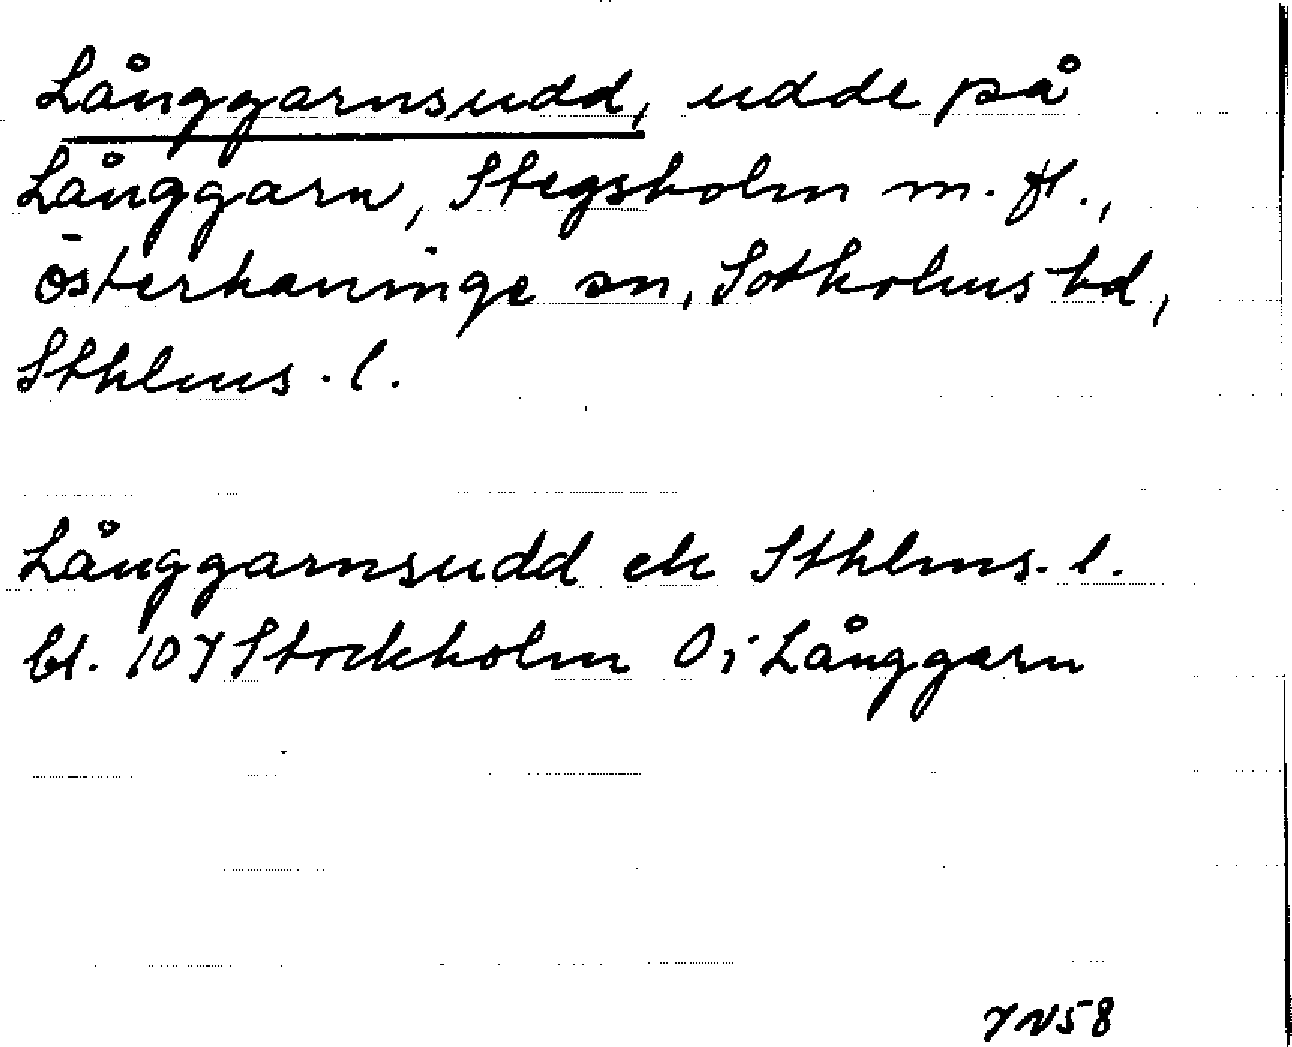 Långgarnsudd, udde på
Långgarn, Stegsholm m. fl.,
Österhaninge sn, Sotholms hd,
Sthlms. l.
Långgarnsudd ek Sthlms. l.
bl. 107 Stockholm O i Långgarn